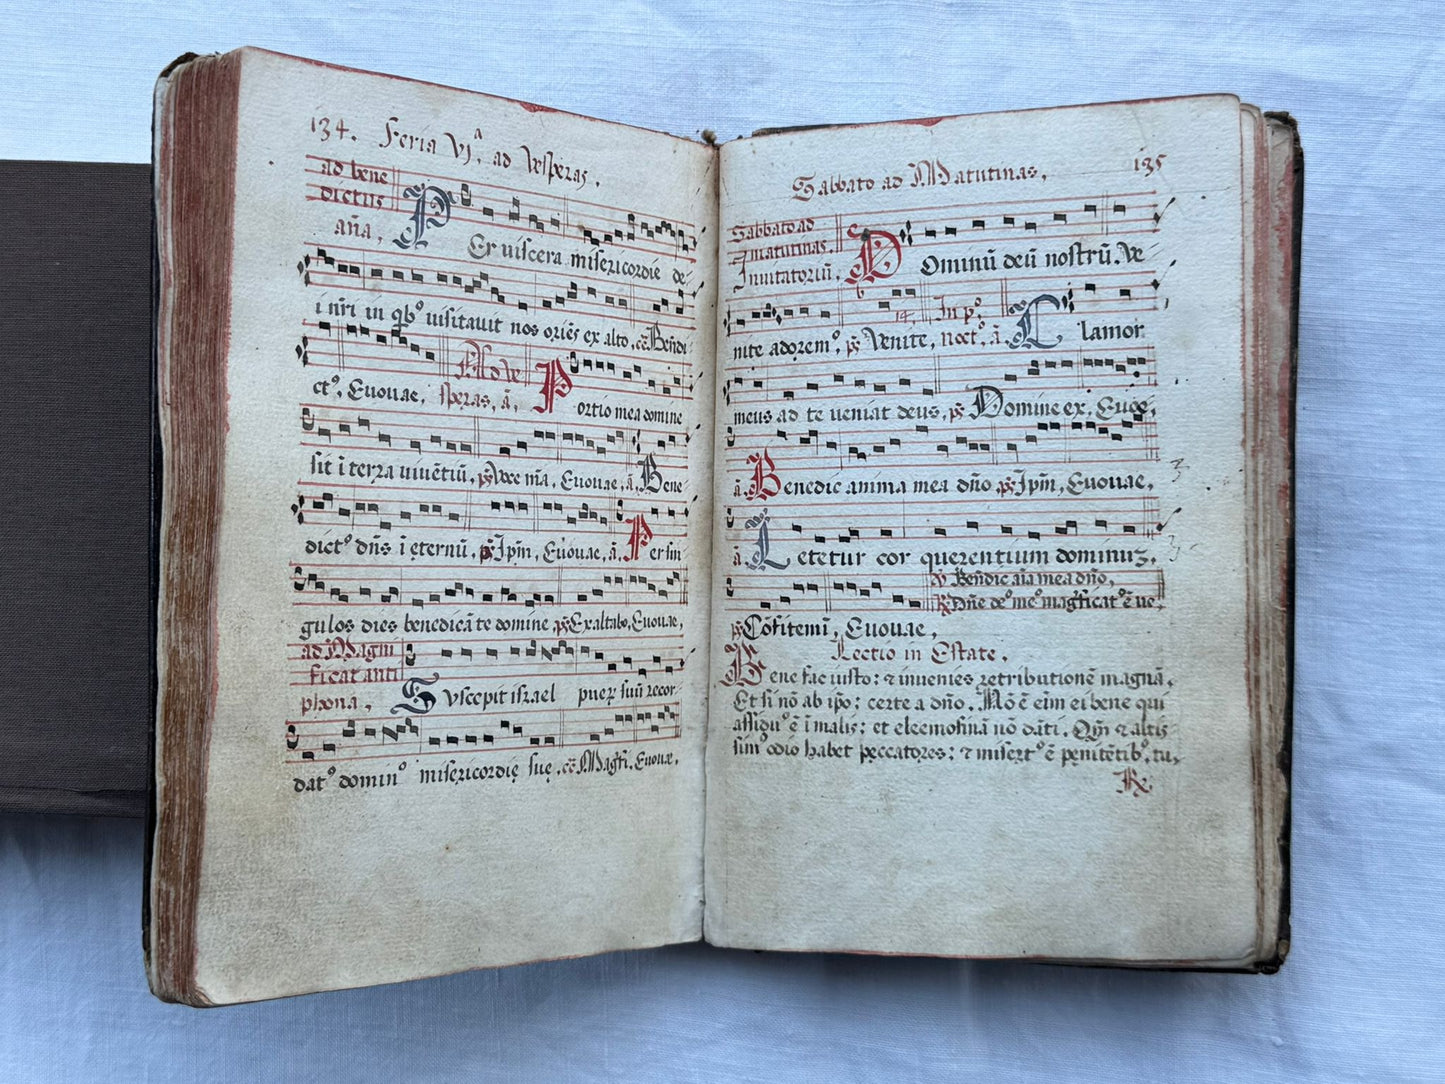 134. Feria VJ.ᴬ ad Vespẽras.
ad bene
dictus
añа, PEr viscera misericordie de
i nr̃i in qb᾽ visitavit nos oriẽs ex alto, cẽ Benẽdi
ct᾽, Euouae, Ad ve
speras, ã, Portio mea domine
sit ĩ terra viuẽtiũ, ps̃ Voce m̃a, Euouae, ã, Bene
dict᾽ dñs ĩ ęternũ, ps̃ Jp̃m, Euouae, ã. Per sin
gulos dies benedicã te domine ps̃ Exaltabo, Euouae,
ad Magni
ficat anti
phona, Suscepit israel puer suũ recor
dat᾽ domin᾽ misericordię suę, cẽ Magf̃i. Euouae,
Sabbato ad Matutinas, 135
Sabbato ad
matutinas.
Jnuitatoriũ. Dominũ deũ nostrũ. Ve
nite adorem᾽, ps̃ Venite, noct᾽. ã. 14, In p᾽. Clamor
meus ad te veniat deus, ps̃ Domine ex, Euoę,
ã. Benedic anima mea dño ps̃ Jp̃m, Euouae, 3
ã. Letetur cor querentium dominuz, 3
℣ Benẽdic aĩa mea dño,
℟ Dñe de᾽ me᾽ magf̃icat᾽ ẽ ve,
ps̃ Cõfitemĩ, Euouae,
Lectio in Estate.
Bene fac iusto: & inuenies retributionẽ magnã,
Et si nõ ab ip̃o: certe a dño. Nõ ẽ eĩm ei bene qui
assidu᾽ ẽ ĩ malis: et eleemosinã nõ dãti. Qm̃ & altis
sim᾽ odio habet peccatores: & misert᾽ ẽ penitẽtib᾽, tu,
℟